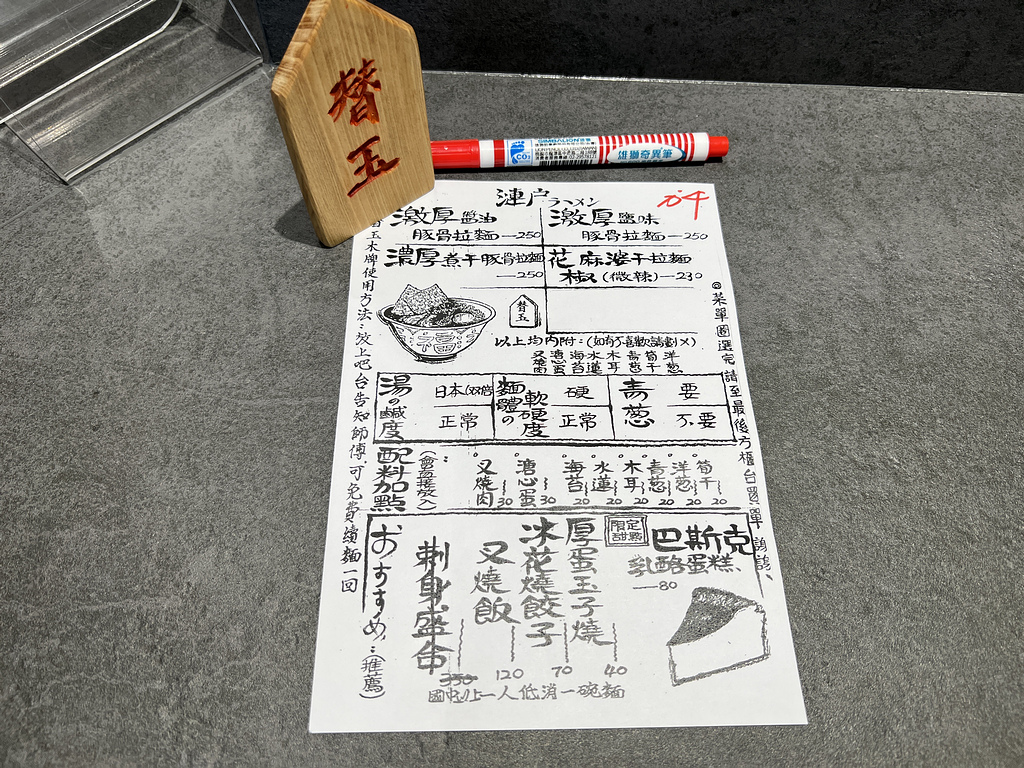 替玉
SIMBALION
CO₂
雄獅奇異筆
漣戶ラーメン
激厚醬油
豚骨拉麵—250
激厚鹽味
豚骨拉麵—250
濃厚煮干豚骨拉麵
—250
花椒麻婆干拉麵
(微辣)—230
替玉
福
以上均內附:(如有不喜歡請劃×)
叉燒肉 溏心蛋 海苔 水蓮 木耳 青蔥 筍干 洋蔥
湯の鹹度
日本(
正常
麵體の軟硬度
硬
正常
青蔥
要
不要
配料加點
(會直接放入)
叉燒肉 30
溏心蛋 30
海苔 20
水蓮 20
木耳 20
青蔥 20
洋蔥 20
筍干 20
おすすめ:(推薦)
刺身盛合 350
叉燒飯 120
冰花燒餃子 70
厚蛋玉子燒 40
限定甜點
巴斯克
乳酪蛋糕、
—80
國中以上一人低消一碗麵
替玉木牌使用方法:放上吧台告知師傅,可免費續麵一回
◎菜單圈選完請至最後方櫃台買單 謝謝、